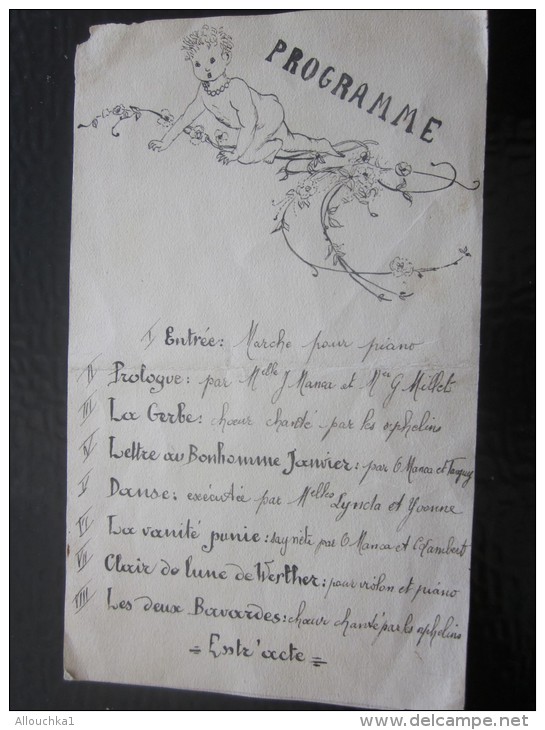 PROGRAMME
I Entrée: Marche pour piano
II Prologue: par Melle J Manca et Mee G Millet
III La Gerbe: chœur chanté par les orphelins
IV Lettre au Bonhomme Janvier: par O Manca et Tanguy
V Danse: exécutée par Melles Lynda et Yvonne
VI La vanité punie: saynète par O Manca et C Lambert
VII Clair de lune de Werther: pour violon et piano
VIII Les deux Bavardes: chœur chanté par les orphelins
= Entr'acte =
Allouchka1
www.delcampe.net